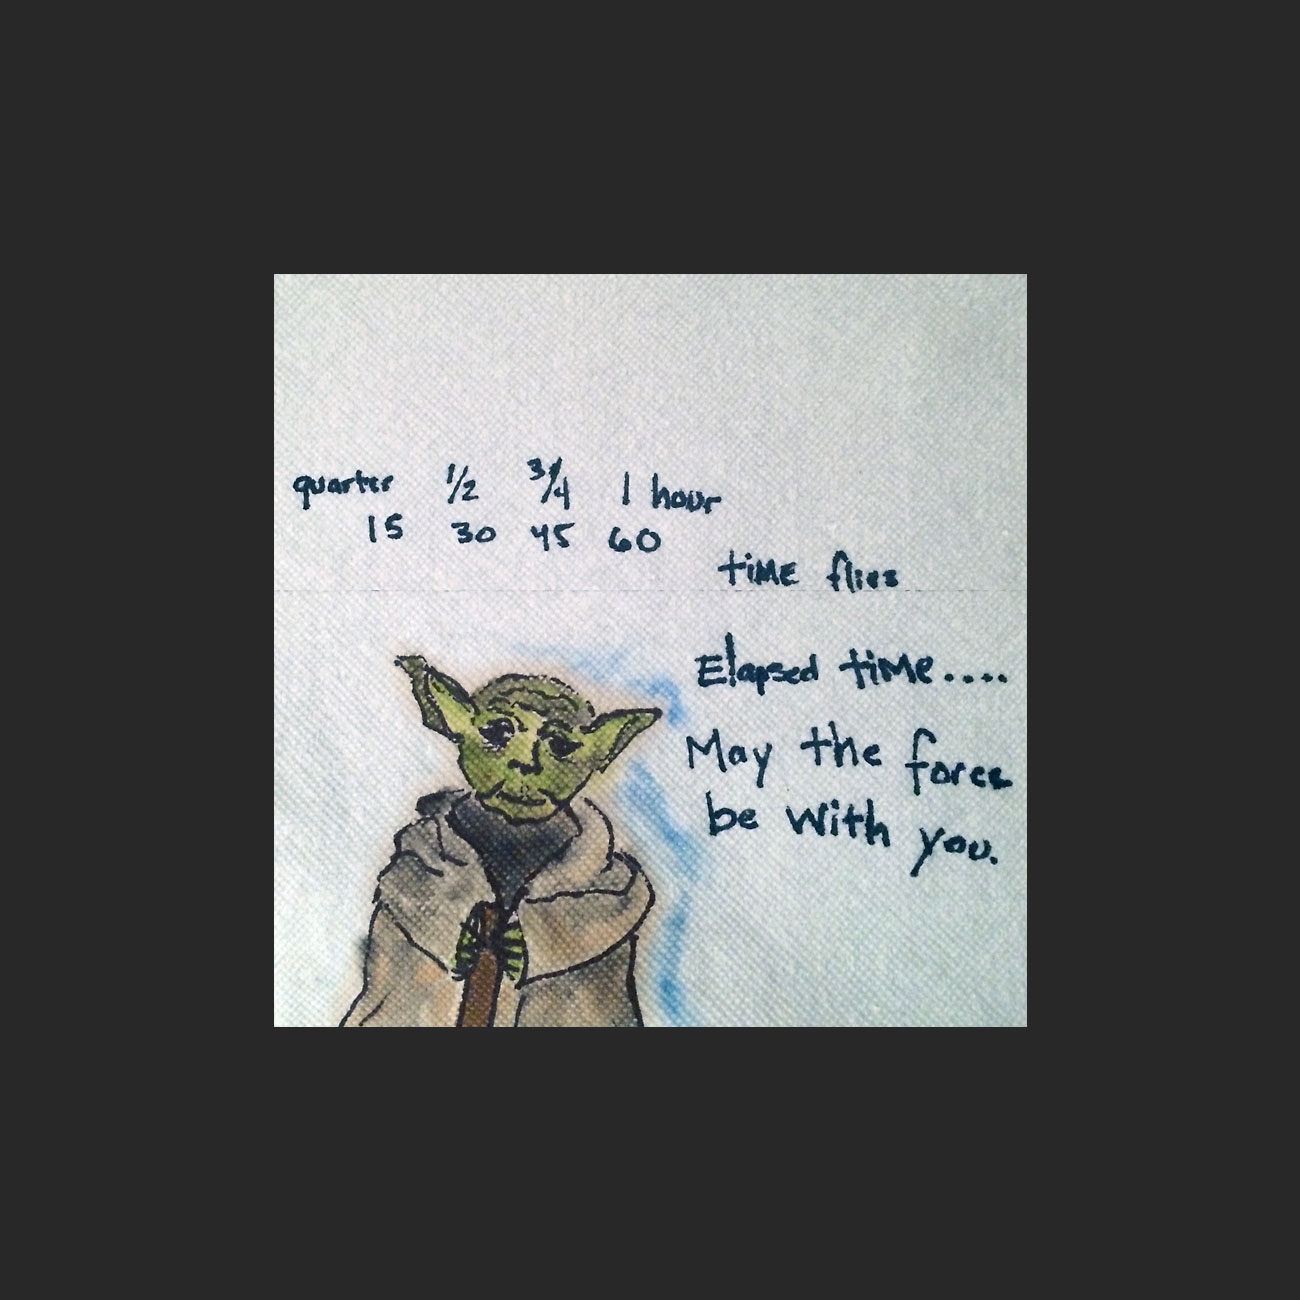 quarter 1/2 3/4 1 hour
15 30 45 60
time flies
Elapsed time....
May the force
be with you.